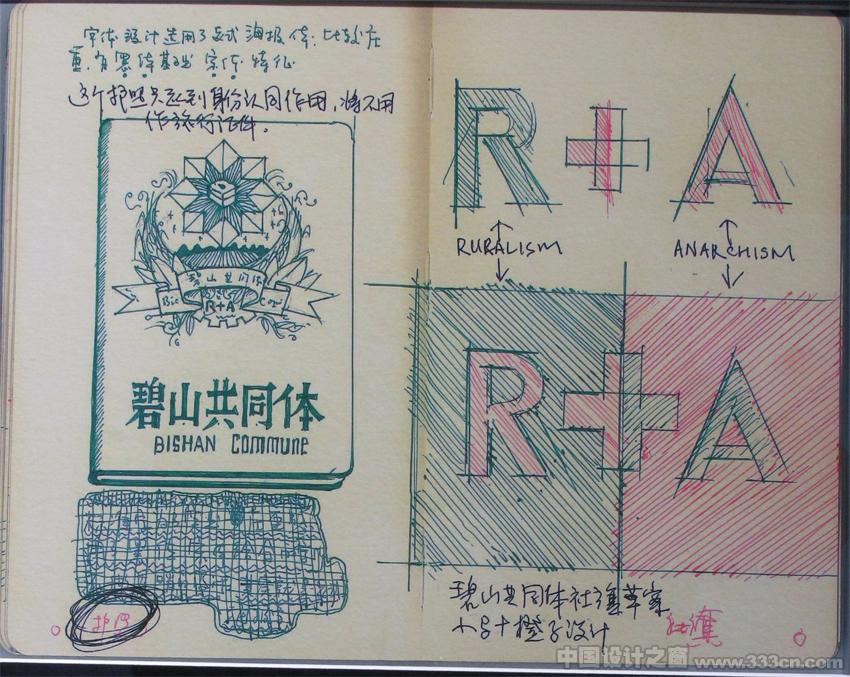 字体设计选用了 海报体: 比较庄
重,有黑体基础 宋体特征
这个护照只起到身份认同作用,将不用
作旅行证件。
碧山共同体
R+A
碧山共同体
BISHAN COMMUNE
护照
R + A
RURALISM ANARCHISM
R + A
碧山共同体社旗草案
小 + 橙子设计
社旗
中国设计之窗 www.333cn.com